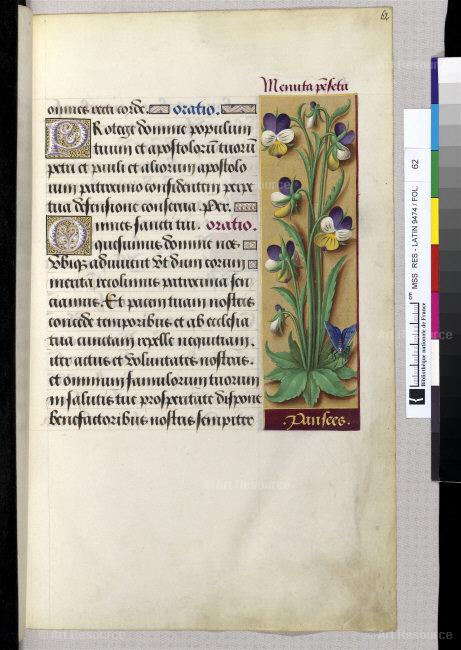 62
Menuta pēseta
omnes recti corde. oratio.
Protege domine populum
tuum et apostolorū tuorū
petri et pauli et aliorum apostolo
rum patrocinio confidentem perpe
tua defensione conserva. Per.
Omnes sancti tui. oratio.
quesumus domine nos
Ubique adiuvent Ut dum eorum
merita recolimus patrocinia sen
ciamus. Et pacem tuam nostris
concede temporibus et ab ecclesia
tua cunctam repelle nequitiam.
iter actus et Voluntates nostras.
et omnium famulorum tuorum
in salutis tue prosperitate dispone
benefactoribus nostris sempiter
.Pansees.
cm
MSS RES - LATIN 9474 / FOL. 62
Bibliothèque nationale de France
© Art Resource